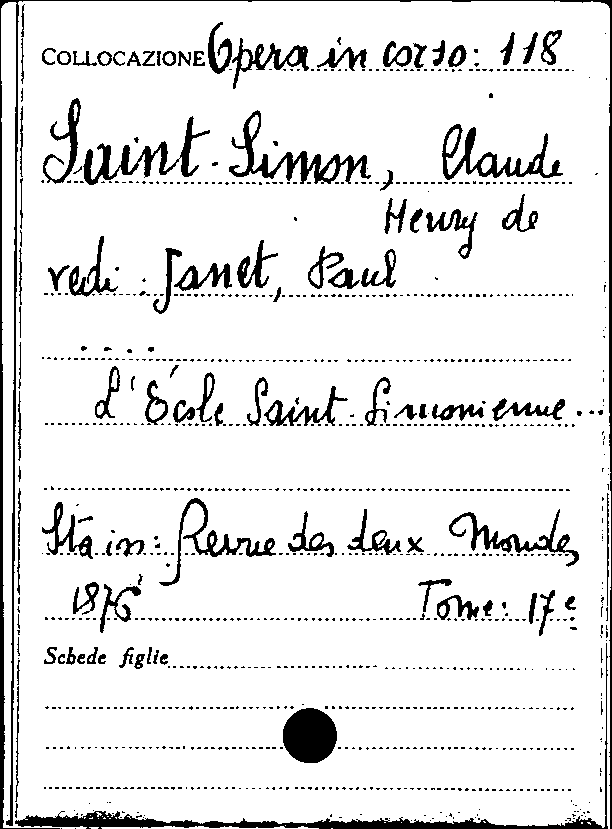 COLLOCAZIONE Opera in corso: 118
Saint-Simon, Claude
Henry de
vedi: Janet, Paul
....
L'École Saint-Simonienne...
Sta in: Revue des deux Mondes
1876 Tome: 17e
Schede figlie